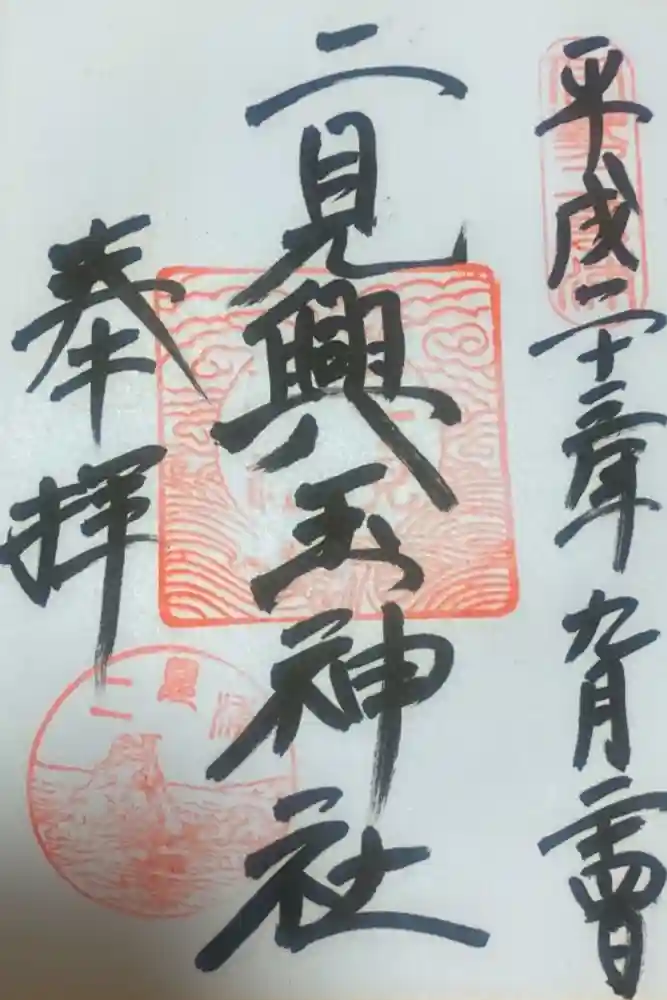 平成二十三年九月二十四日
二見興玉神社
奉拝
二見浦